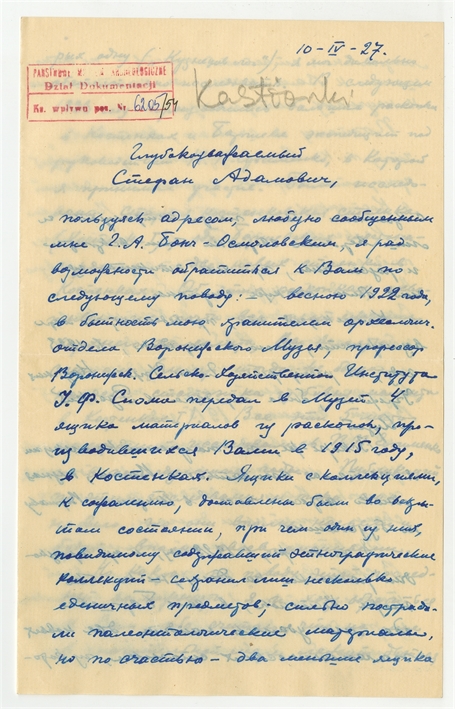 10-IV-27.
PAŃSTWOWE MUZEUM ARCHEOLOGICZNE
Dział Dokumentacji
Ks. wpływu poz. Nr. 6205/54
Kostionki
Глубокоуважаемый
Стефан Адамович,
пользуясь адресом, любезно сообщенным
мне Г. А. Бонч-Осмоловским, я рад
возможности обратиться к Вам по
следующему поводу: весною 1922 года,
в бытность мою хранителем археологич.
отдела Воронежского Музея, профессор
Воронежск. Сельско-Хозяйственного Института
передал в Музей 4
ящика материалов из раскопок, про-
изводившихся Вами в 1915 году,
в Костенках. Ящики с коллекциями,
к сожалению, доставлены были во
состоянии, при чем один из них,
повидимому содержавший этнографические
коллекции – сохранил лишь несколько
единичных предметов; сильно пострада-
ли палеонтологические материалы,
но по счастью – два меньших ящика